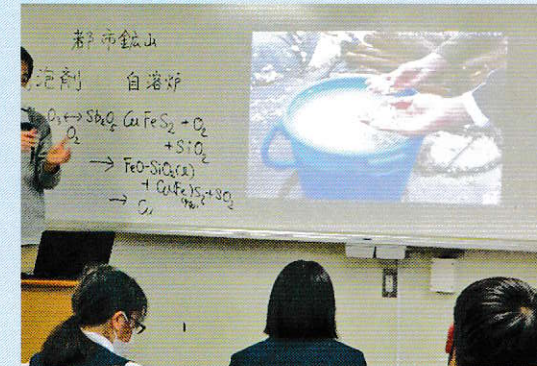 都市鉱山
泡剤 自溶炉
O₃↔Sb₂O₅ CuFeS₂ + O₂
O₂ + SiO₂
→ FeO-SiO₂(l)
+ Cu(Fe)S₂+SO₂
→ Cu